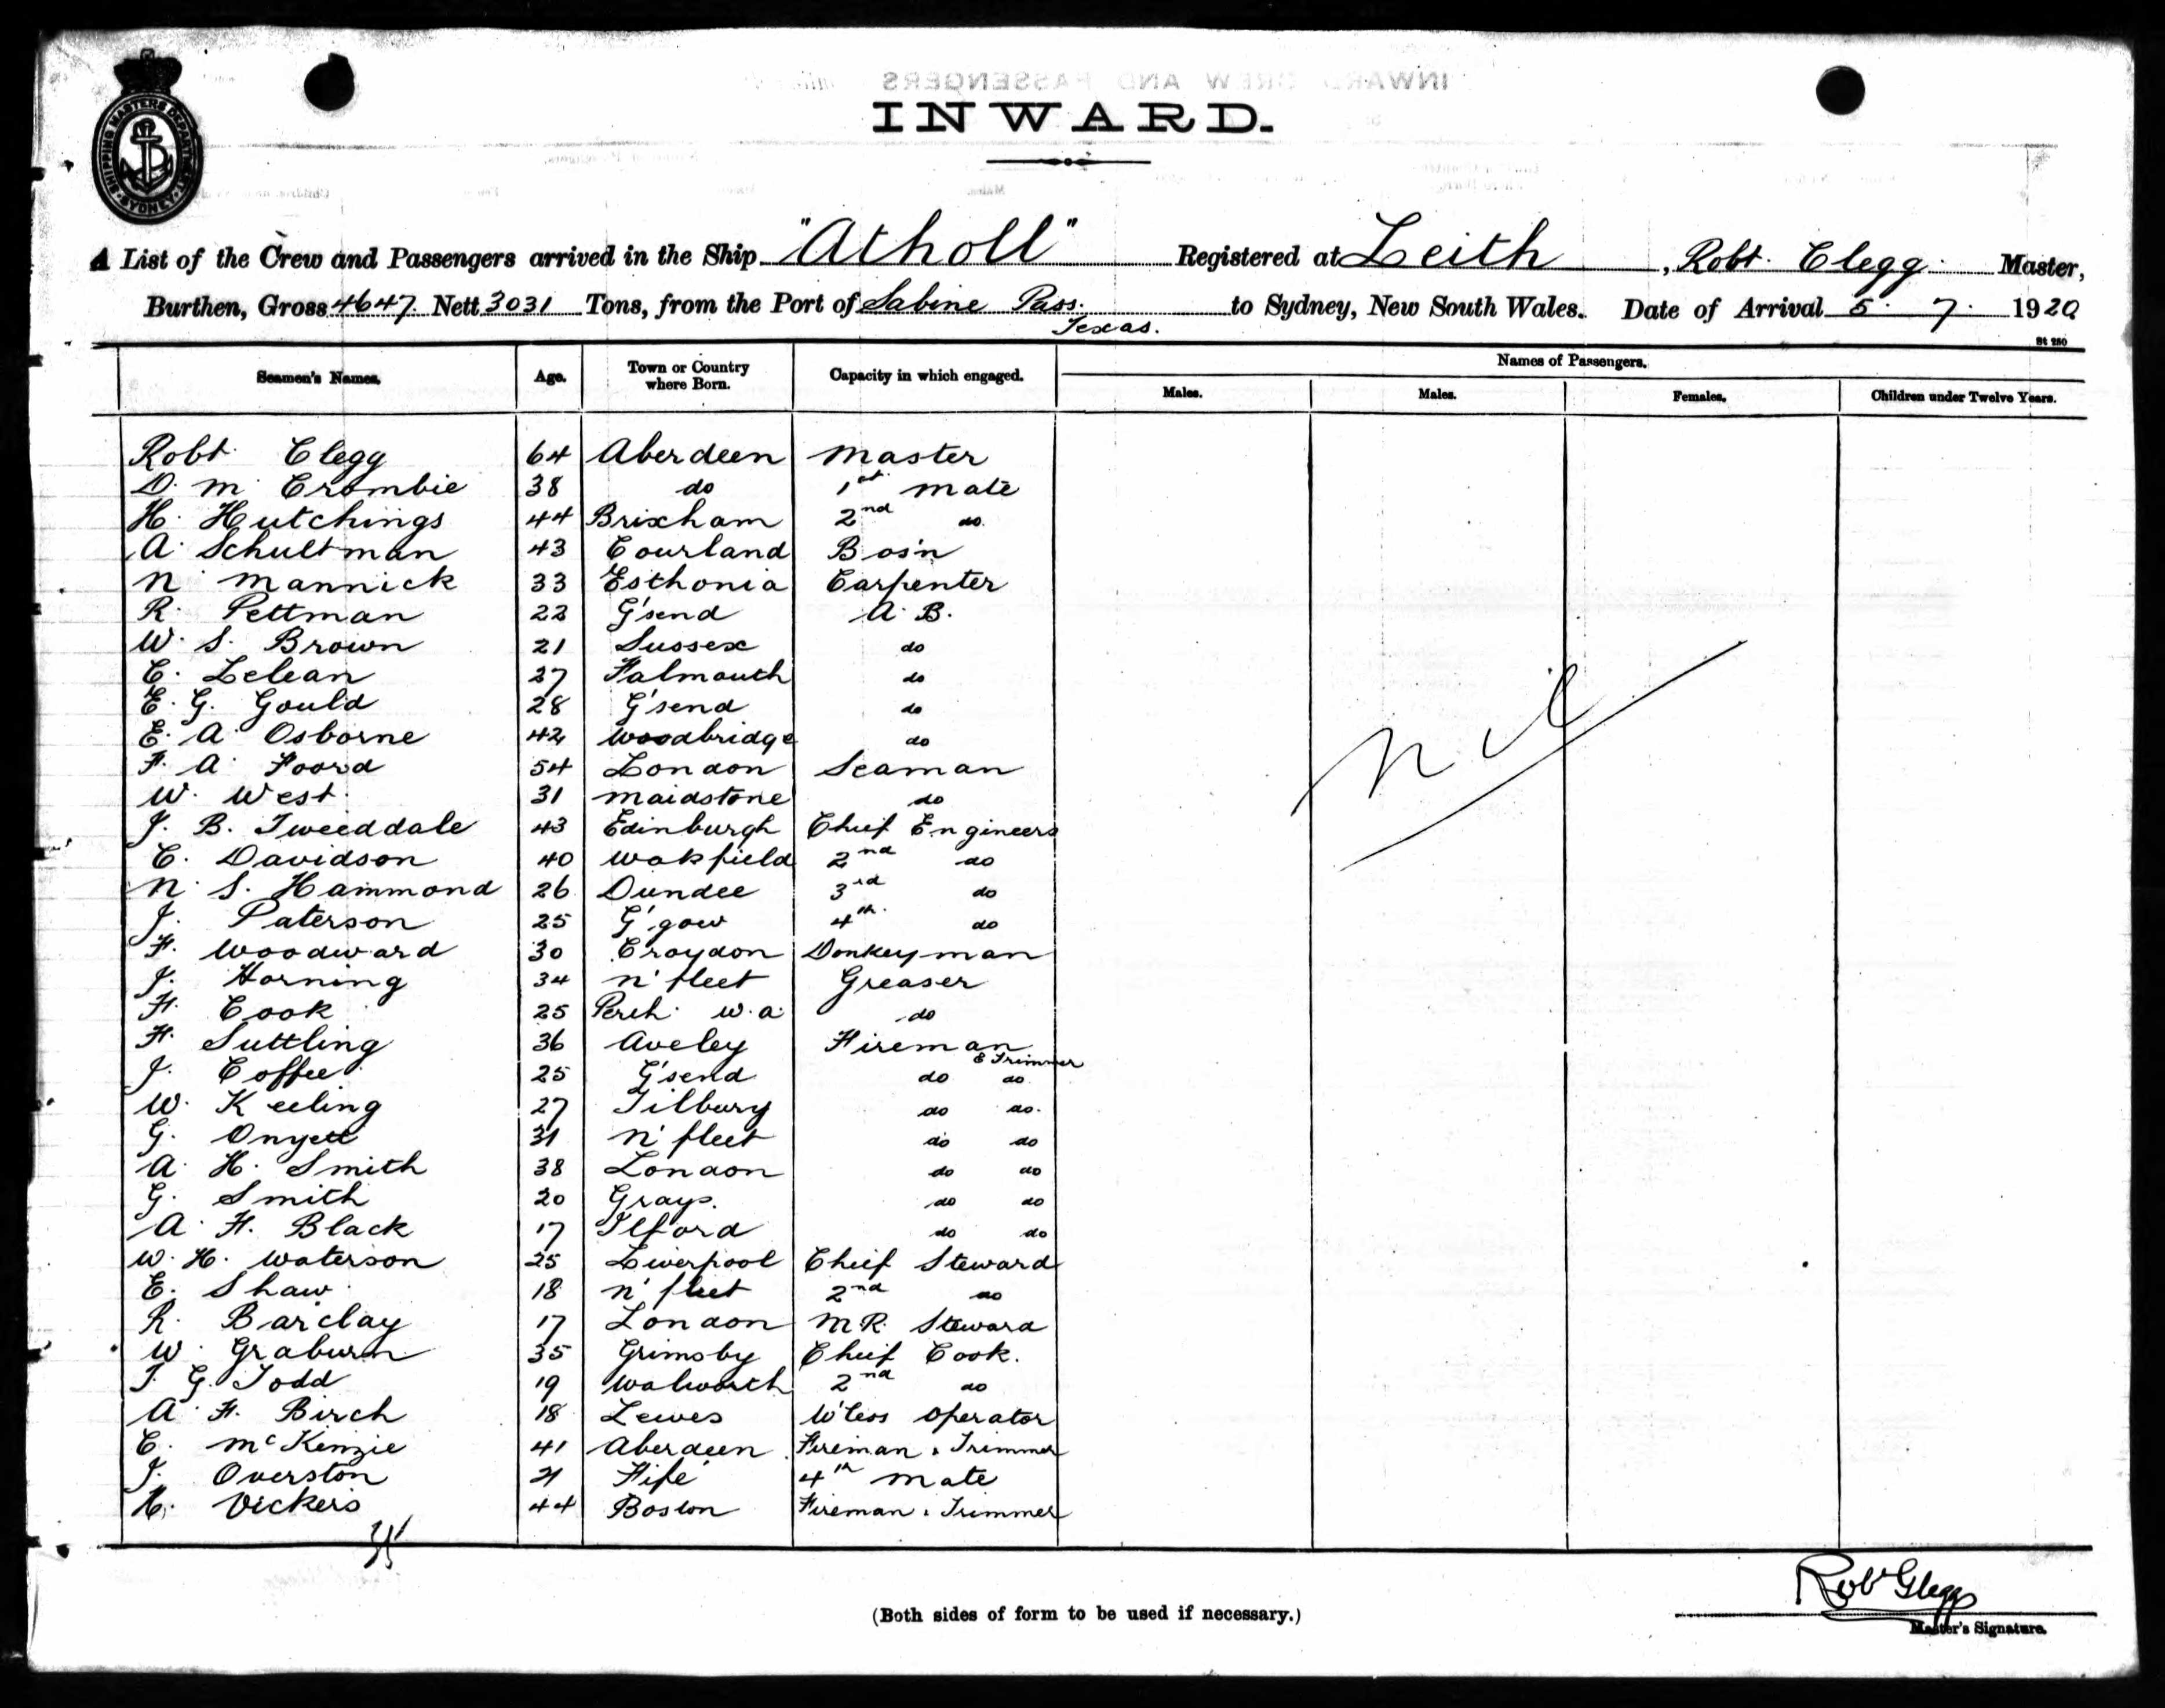 SHIPPING MASTERS DEPARTMENT SYDNEY
INWARD.
A List of the Crew and Passengers arrived in the Ship "Atholl" Registered at Leith, Robt. Clegg Master,
Burthen, Gross 4647 Nett 3031 Tons, from the Port of Sabine Pass. Texas. to Sydney, New South Wales. Date of Arrival 5. 7. 1920
St 280
Seamen's Names. Age. Town or Country where Born. Capacity in which engaged. Names of Passengers.
Males. Males. Females. Children under Twelve Years.
Robt. Clegg 64 Aberdeen Master
D. M. Crombie 38 do 1st Mate
H. Hutchings 44 Brixham 2nd do.
A. Schultman 43 Courland Bos'n
N. Mannick 33 Esthonia Carpenter
R. Pettman 22 G'send A. B.
W. S. Brown 21 Sussex do
C. Lelean 27 Falmouth do
E. G. Gould 28 G'send do
E. A. Osborne 42 Woodbridge do
F. A. Foord 54 London Seaman
W. West. 31 Maidstone do
J. B. Tweeddale 43 Edinburgh Chief Engineers
C. Davidson 40 Wakfield 2nd do
N. S. Hammond 26 Dundee 3rd do
J. Paterson 25 G'gow 4th. do
F. Woodward 30 Croydon Donkeyman
J. Horning 34 N'fleet Greaser
F. Cook 25 Perth. W.A. do
F. Suttling 36 Aveley Fireman & Trimmer
J. Coffee 25 G'send do do
W. Keeling 27 Tilbury do do.
G. Onyett 31 N'fleet do do
A. H. Smith 38 London do do
G. Smith 20 Grays. do do
A. F. Black 17 Ilford do do
W. H. Waterson 25 Liverpool Chief Steward
E. Shaw 18 N'fleet 2nd do
R. Barclay 17 London M.R. Steward
W. Graburn 35 Grimsby Chief Cook.
T. G. Todd 19 Walworth 2nd do
A. F. Birch 18 Lewes W'less Operator
C. McKenzie 41 Aberdeen Fireman & Trimmer
J. Overston 21 Fife 4th Mate
H. Vickers 44 Boston Fireman & Trimmer
Nil
Robt Clegg
(Both sides of form to be used if necessary.)
Master's Signature.